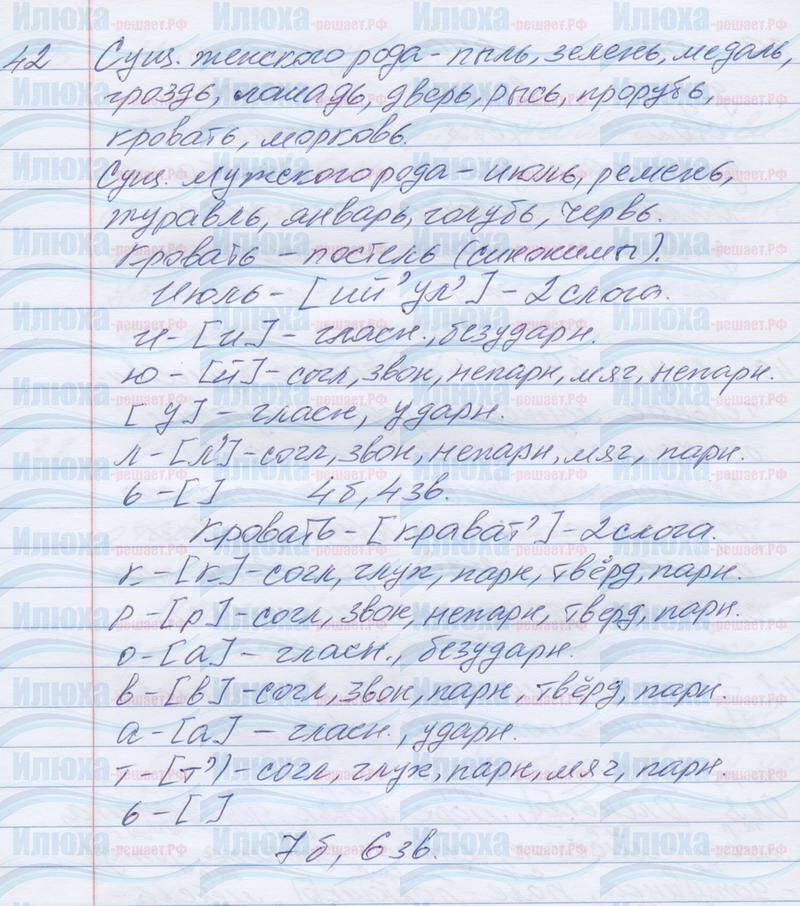 42 Сущ. женского рода - пыль, зелень, медаль,
гроздь, лошадь, дверь, рысь, прорубь,
кровать, морковь.
Сущ. мужского рода - июль, ремень,
журавль, январь, голубь, червь.
Кровать - постель (синонимы).
Июль - [ий’ул’] - 2 слога.
и - [и] - гласн., безударн.
ю - [й] - согл, звон, непарн, мяг, непарн.
[у] - гласн, ударн.
л - [л’] - согл, звон, непарн, мяг, парн.
ь - [ ] 4б, 4зв.
Кровать - [крават’] - 2 слога.
к - [к] - согл, глух, парн, твёрд, парн.
р - [р] - согл, звон, непарн, твёрд, парн.
о - [а] - гласн., безударн.
в - [в] - согл, звон, парн, твёрд, парн.
а - [а] - гласн., ударн.
т - [т’) - согл, глух, парн, мяг, парн.
ь - [ ]
7б, 6зв.